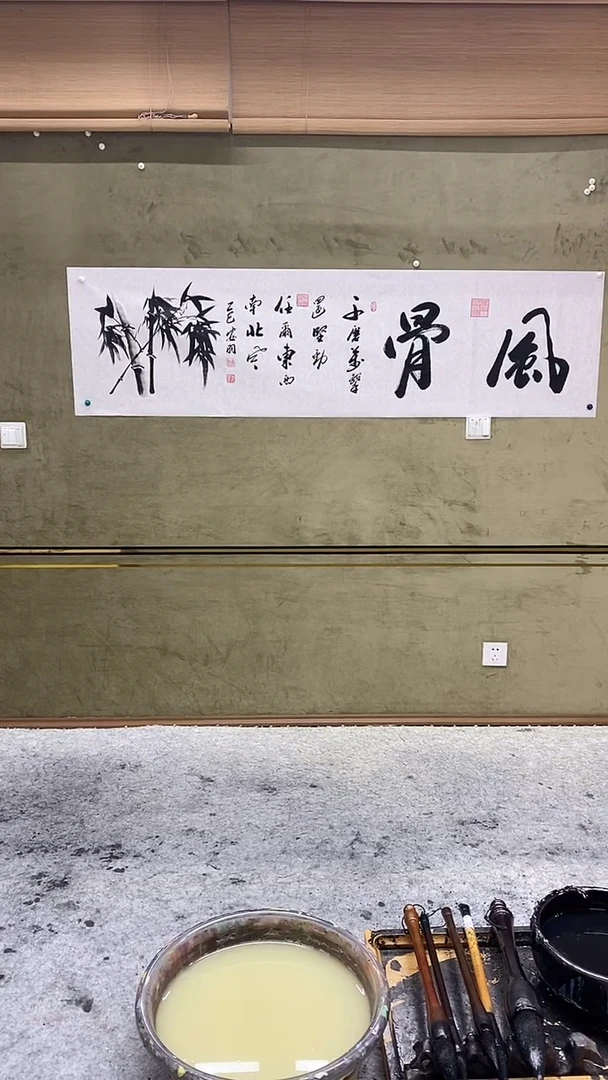 風骨
千磨萬擊
還堅勁
任爾東西
南北風
乙巳